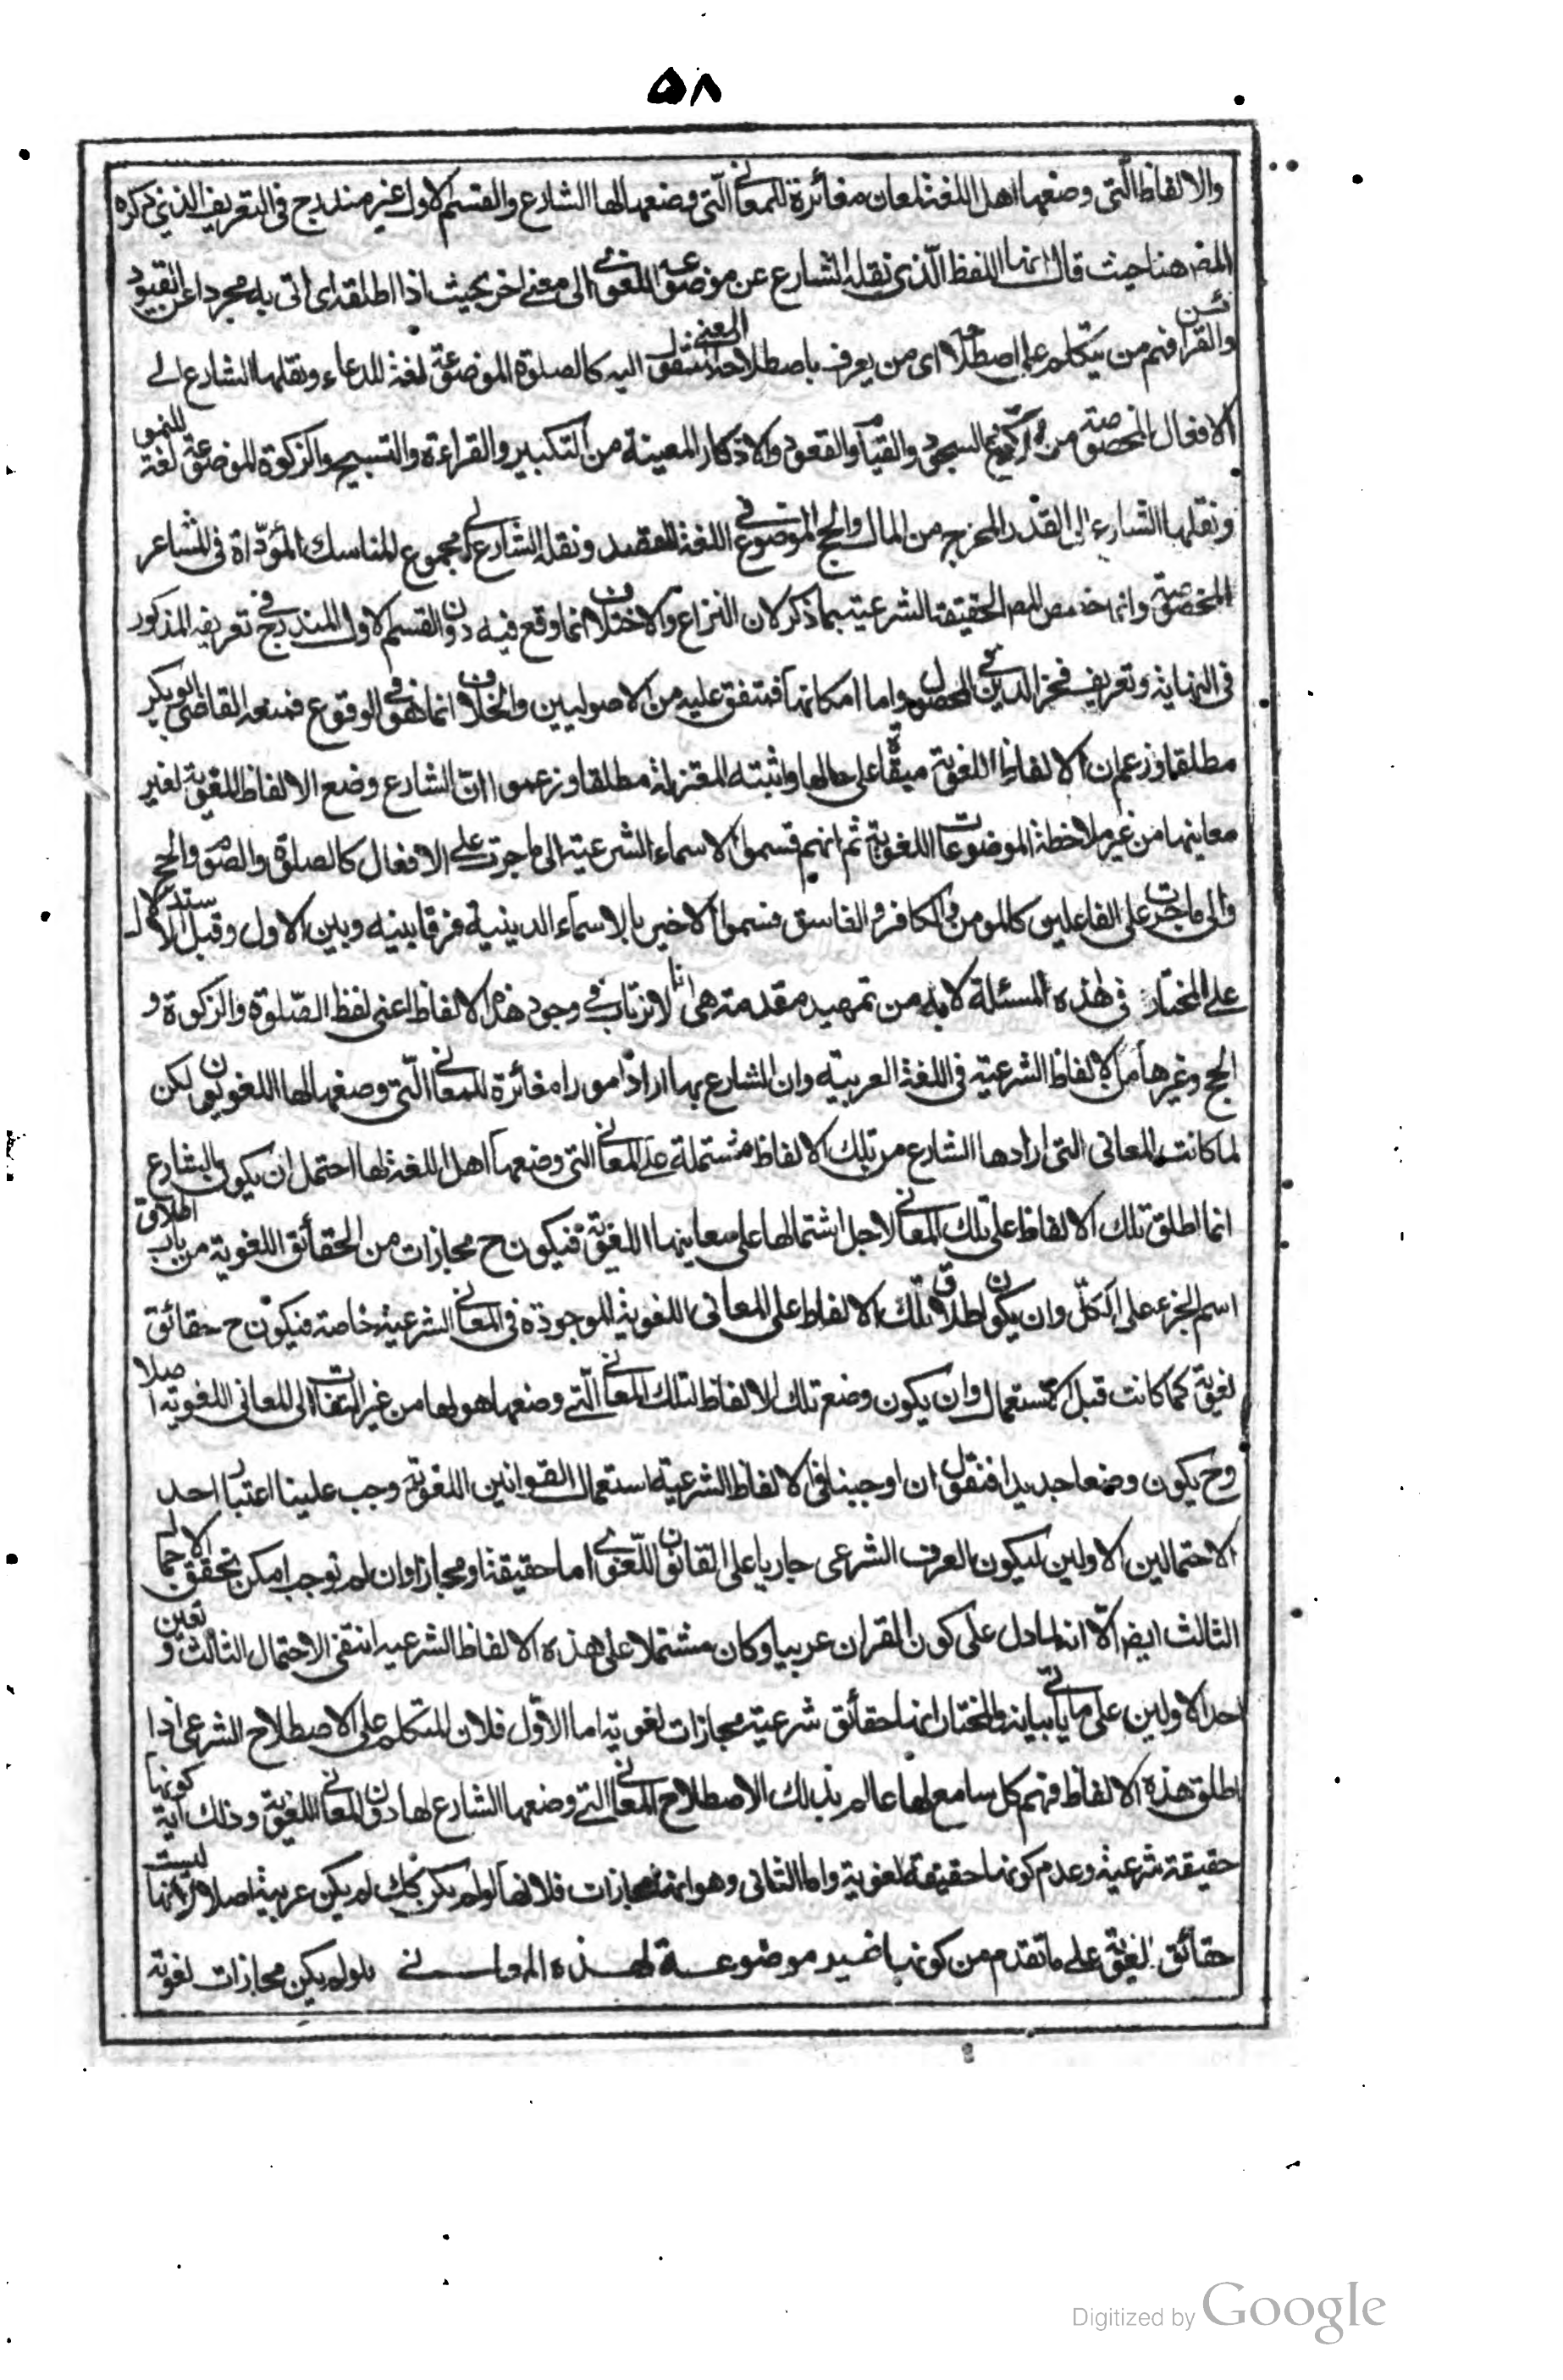 ٥٨
والالفاظ الّتى وضعها اهل اللغة لمعان مغائرة للمعانى الّتى وضعها لها الشارع والقسم الاول غير مندرج فى التعريف الذى ذكره
المص هنا حيث قال انها اللفظ الّذى نقله الشارع عن موضوعه اللغوى الى معنى اخر بحيث اذا اطلقه اى اتى به مجردا عن القيود
والقرائن فهم من يتكلم على اصطلاحه اى من يعرف باصطلاحه المعنى المنتقل اليه كالصلوة الموضوعة لغة للدعاء ونقلها الشارع الى
الافعال المخصوصة من الركوع والسجود والقيام والقعود والاذكار المعينة من التكبير والقراءة والتسبيح والزكوة الموضوعة لغة للنمو
ونقلها الشارع الى القدر المخرج من المال والحج الموضوع فى اللغة للقصد ونقله الشارع لمجموع المناسك المؤدّاة فى المشاعر
المخصوصة وانما خصص المص الحقيقة الشرعية بما ذكر لان النزاع والاختلاف انما وقع فيه دون القسم الاول المندرج فى تعريفه المذكور
فى النهاية وتعريف فخر الدين فى المحصول واما امكانها فمتفق عليه من الاصوليين والخلاف انما هو فى الوقوع فمنعه القاضى ابو بكر
مطلقا وزعم ان الالفاظ اللغوية مبقاة على حالها واثبته المعتزلة مطلقا وزعموا انّ الشارع وضع الالفاظ اللغوية لغير
معانيها من غير ملاحظة الموضوعات اللغوية ثم انهم قسموا الاسماء الشرعية الى ما جرت على الافعال كالصلوة والصوم والحج
والى ما جرت على الفاعلين كالمومن والكافر والفاسق فسموا الاخير بالاسماء الدينية فرقا بينه وبين الاول وقبل الاستدلال
على المختار فى هذه المسئلة لابد من تمهيد مقدمة هى انا لا نرتاب فى وجود هذه الالفاظ اعنى لفظ الصّلوة والزكوة و
الحج وغيرها من الالفاظ الشرعية فى اللغة العربية وان الشارع بها اراد امورا مغائرة للمعانى الّتى وضعها لها اللغويون لكن
لما كانت المعانى التى ارادها الشارع من تلك الالفاظ مشتملة على المعانى التى وضعها اهل اللغة لها احتمل ان يكون الشارع
انما اطلق تلك الالفاظ على تلك المعانى لاجل اشتمالها على معانيها اللغوية فيكون ح مجازات من الحقائق اللغوية من باب اطلاق
اسم الجزء على الكلّ وان يكون اطلاق تلك الالفاظ على المعانى اللغوية الموجودة فى المعانى الشرعية خاصة فيكون ح حقائق
لغوية كما كانت قبل الاستعمال وان يكون وضع تلك الالفاظ لتلك المعانى الّتى وضعها هو لها من غير التفات الى المعانى اللغوية اصلا
وح يكون وضعا جديدا فنقول ان اوجبنا فى الالفاظ الشرعية استعمال القوانين اللغوية وجب علينا اعتبار احد
الاحتمالين الاولين ليكون العرف الشرعى جاريا على القانون اللّغوى اما حقيقة او مجازا وان لم نوجب امكن تحقق الاحتمال
الثالث ايض الّا انه لما دل على كون القران عربيا وكان مشتملا على هذه الالفاظ الشرعية انتفى الاحتمال الثالث و تعين
احد الاولين على ما ياتى بيانه والمختار انها حقائق شرعية مجازات لغوية اما الاوّل فلان المتكلم على الاصطلاح الشرعى اذا
اطلق هذه الالفاظ فهم كل سامع لها عالم بذلك الاصطلاح المعانى التى وضعها الشارع لها دون المعانى اللغوية وذلك اية كونها
حقيقة شرعية وعدم كونها حقيقة لغوية واما الثانى وهو انها مجازات فلانها لو لم يكن كك لم يكن عربية اصلا لانها ليست
حقائق لغوية على ما تقدم من كونها غير موضوعة لهذه المعانى فلو لم يكن مجازات لغوية
Digitized by Google